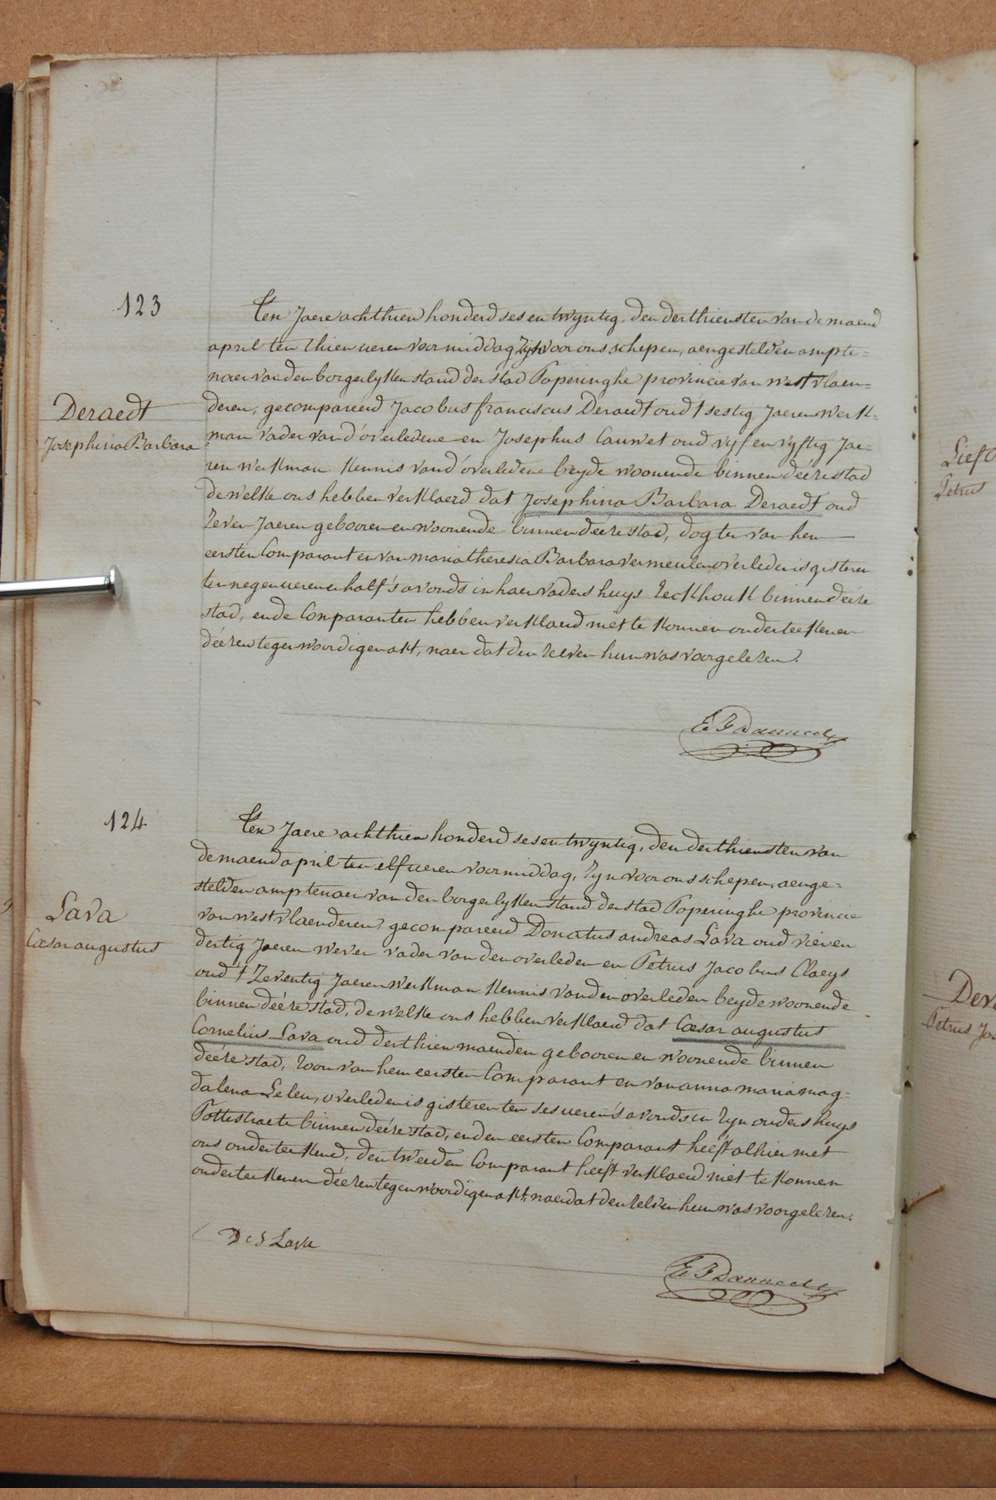 123
Deraedt
Josephina Barbara
Ten Jaere achthien honderd sesentwyntig, den derthiensten van de maend
april ten thien ueren voormiddag Zyn voor ons schepen, aengestelden ampte-
naer van den borgerlyken stand der stad Poperinghe provincie van westvlaen-
deren, gecompareerd Jacobus franciscus Deraedt oud tsestig Jaeren werk-
man vader van d'overledene en Josephus Cauwet oud vyf en vyftig Jae-
ren werkman kennis van d'overledene beyde woonende binnen deéze stad
dewelke ons hebben verklaerd dat Josephina Barbara Deraedt oud
Zeven Jaeren gebooren en woonende binnen deéze stad, dogter van hem
eersten Comparant en van maria theresia Barbara vermeulen overleden is gisteren
ten negen ueren en half s'avonds in haer vaders huys Eeckhout binnen deéze
stad, ende Comparanten hebben verklaerd niet te konnen onderteekenen
deézen tegenwoordigen akt, naer dat den zelven hun was voorgelezen.
124
Lava
Cæsar augustus
Ten Jaere achthien honderd sesentwyntig, den derthiensten van
de maend april ten elf ueren voormiddag, Zyn voor ons schepen, aenge-
stelden amptenaer van den borgerlyken stand der stad Poperinghe provincie
van westvlaenderen, gecompareerd Donatus andreas Lava oud vier en
dertig Jaeren wever vader van den overleden en Petrus Jacobus Claeys
oud t'Zeventig Jaeren werkman kennis van den overleden beyde woonende
binnen deéze stad, dewelke ons hebben verklaerd dat Cæsar augustus
Cornelius Lava oud derthien maenden gebooren en woonende binnen
deéze stad, zoon van hem eersten Comparant en van anna maria mag-
dalena Leleu, overleden is gisteren ten ses ueren s'avonds in Zyn ouders huys
Pottestraete binnen deéze stad, ende den eersten Comparant heeft alhier met
ons onderteekend, den tweeden Comparant heeft verklaerd niet te konnen
onderteekenen deézen tegenwoordigen akt, naer dat den zelven hun was voorgelezen.
Lava
Petrus